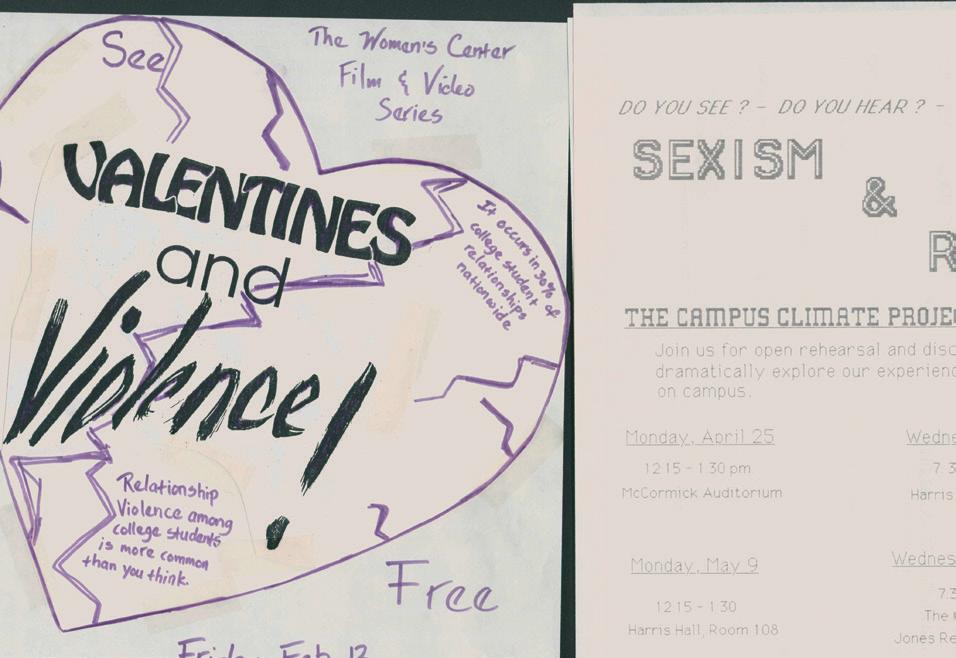 See
The Women's Center
Film & Video
Series
VALENTINES
and
Violence!
It occurs in 30% of
college student
relationships
nationwide
Relationship
Violence among
college students
is more common
than you think.
Free
Friday Feb 12
DO YOU SEE ? - DO YOU HEAR ? -
SEXISM
&
R
THE CAMPUS CLIMATE PROJEC
Join us for open rehearsal and disc
dramatically explore our experienc
on campus.
Monday, April 25
12 15 - 1 30 pm
McCormick Auditorium
Wedn
7 3
Harris
Monday, May 9
12 15 - 1 30
Harris Hall, Room 108
Wednes
7.3
The
Jones Re